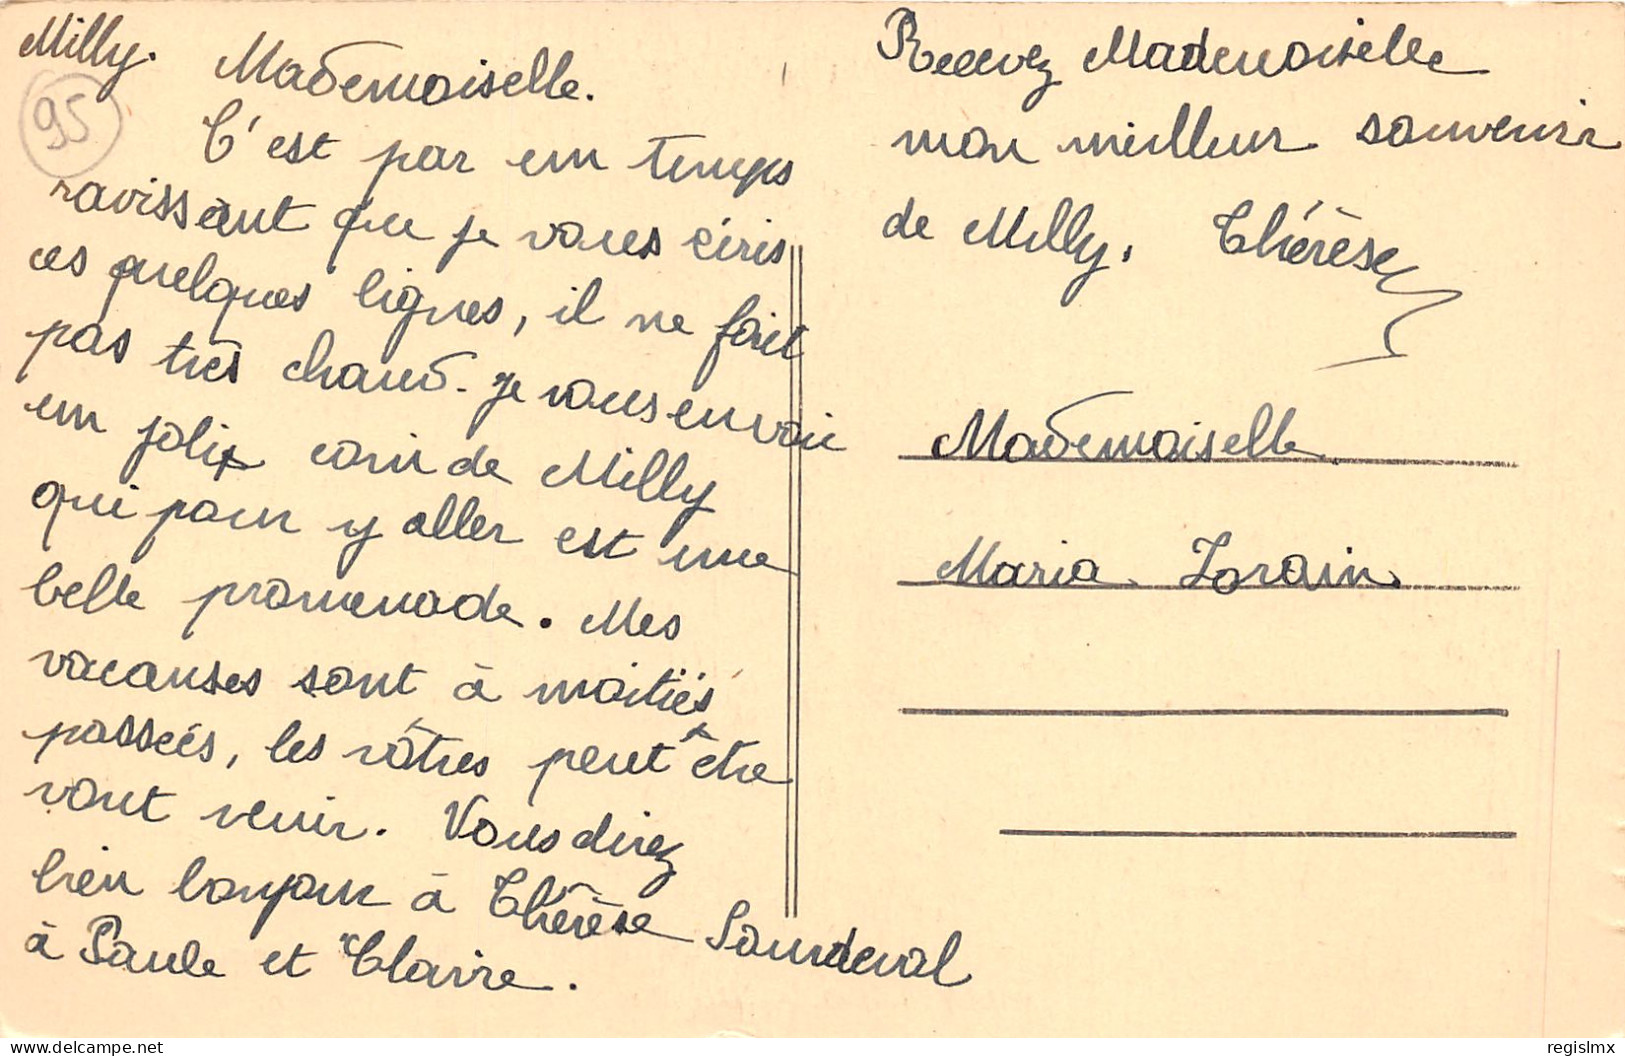 Milly.
95
Mademoiselle.
C'est par un temps
ravissant que je vous écris
ces quelques lignes, il ne fait
pas très chaud. Je vous envoie
un joli coin de Milly
qui pour y aller est une
belle promenade. Mes
vacanses sont à moitiés
passées, les vôtres peut être
vont venir. Vous direz
bien bonjour à Thérèse Sourdeval
à Paule et Claire.
Recevez Mademoiselle
mon meilleur souvenir
de Milly. Thérèse
Mademoiselle
Maria Lorain
delcampe.net
regislmx